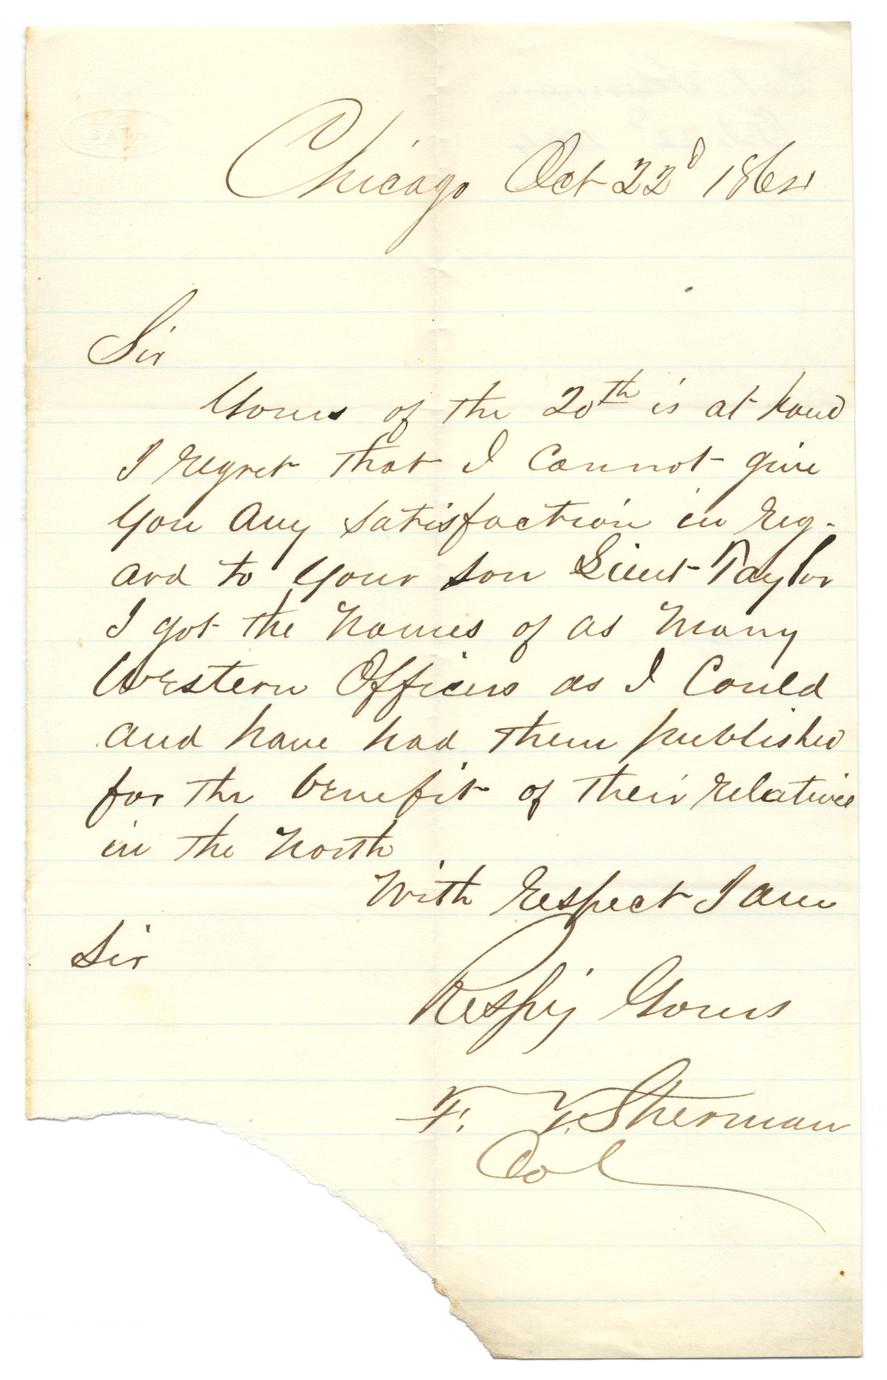 Chicago Oct 22d 1864
Sir
Yours of the 20th is at hand
I regret that I cannot give
You any satisfaction in reg-
ard to your son Lieut Taylor
I got the names of as many
Western Officers as I Could
and have had them published
for the benefit of their relatives
in the North
With respect I am
Sir
Respy Yours
F. T. Sherman
Col